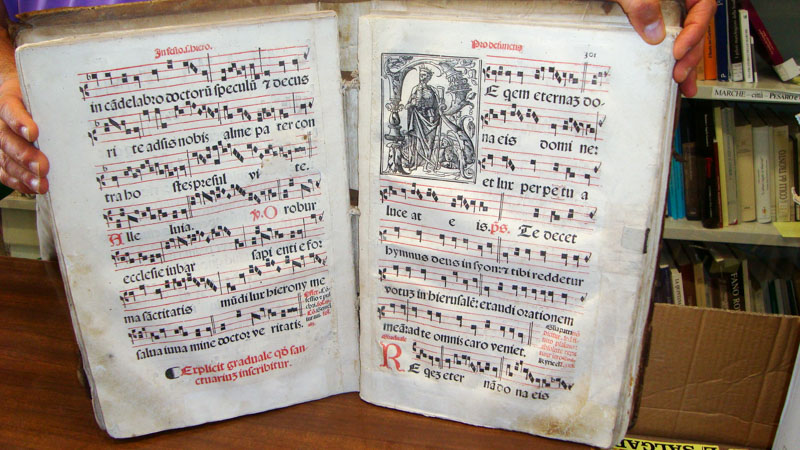 In festo s. hiero.
in cādelabro doctorū speculū ⁊ decus
ri te adsis nobis alme pa ter con
tra ho stes presul vi te.
Alle luia. ℣. O robur
ecclesie iubar sapi enti e fo
ma sāctitatis mūdi lux hierony me
salua tuua mine doctor ve ritatis.
Explicit graduale qd̄ san
ctuariuꝫ inscribitur.
Pro defunctis
301
E qem eternaꝫ do
na eis domi ne:
et lux perpetu a
luce at e is. ps. Te decet
hymnus deus in syon: ⁊ tibi reddetur
votuꝫ in hierusalē: exaudi orationem
meā: ad te omnis caro veniet.
Graduale
R E qeꝫ eter nā do na eis
Kyriel.
MARCHE - città PESARO e
FANO RO
SALGA